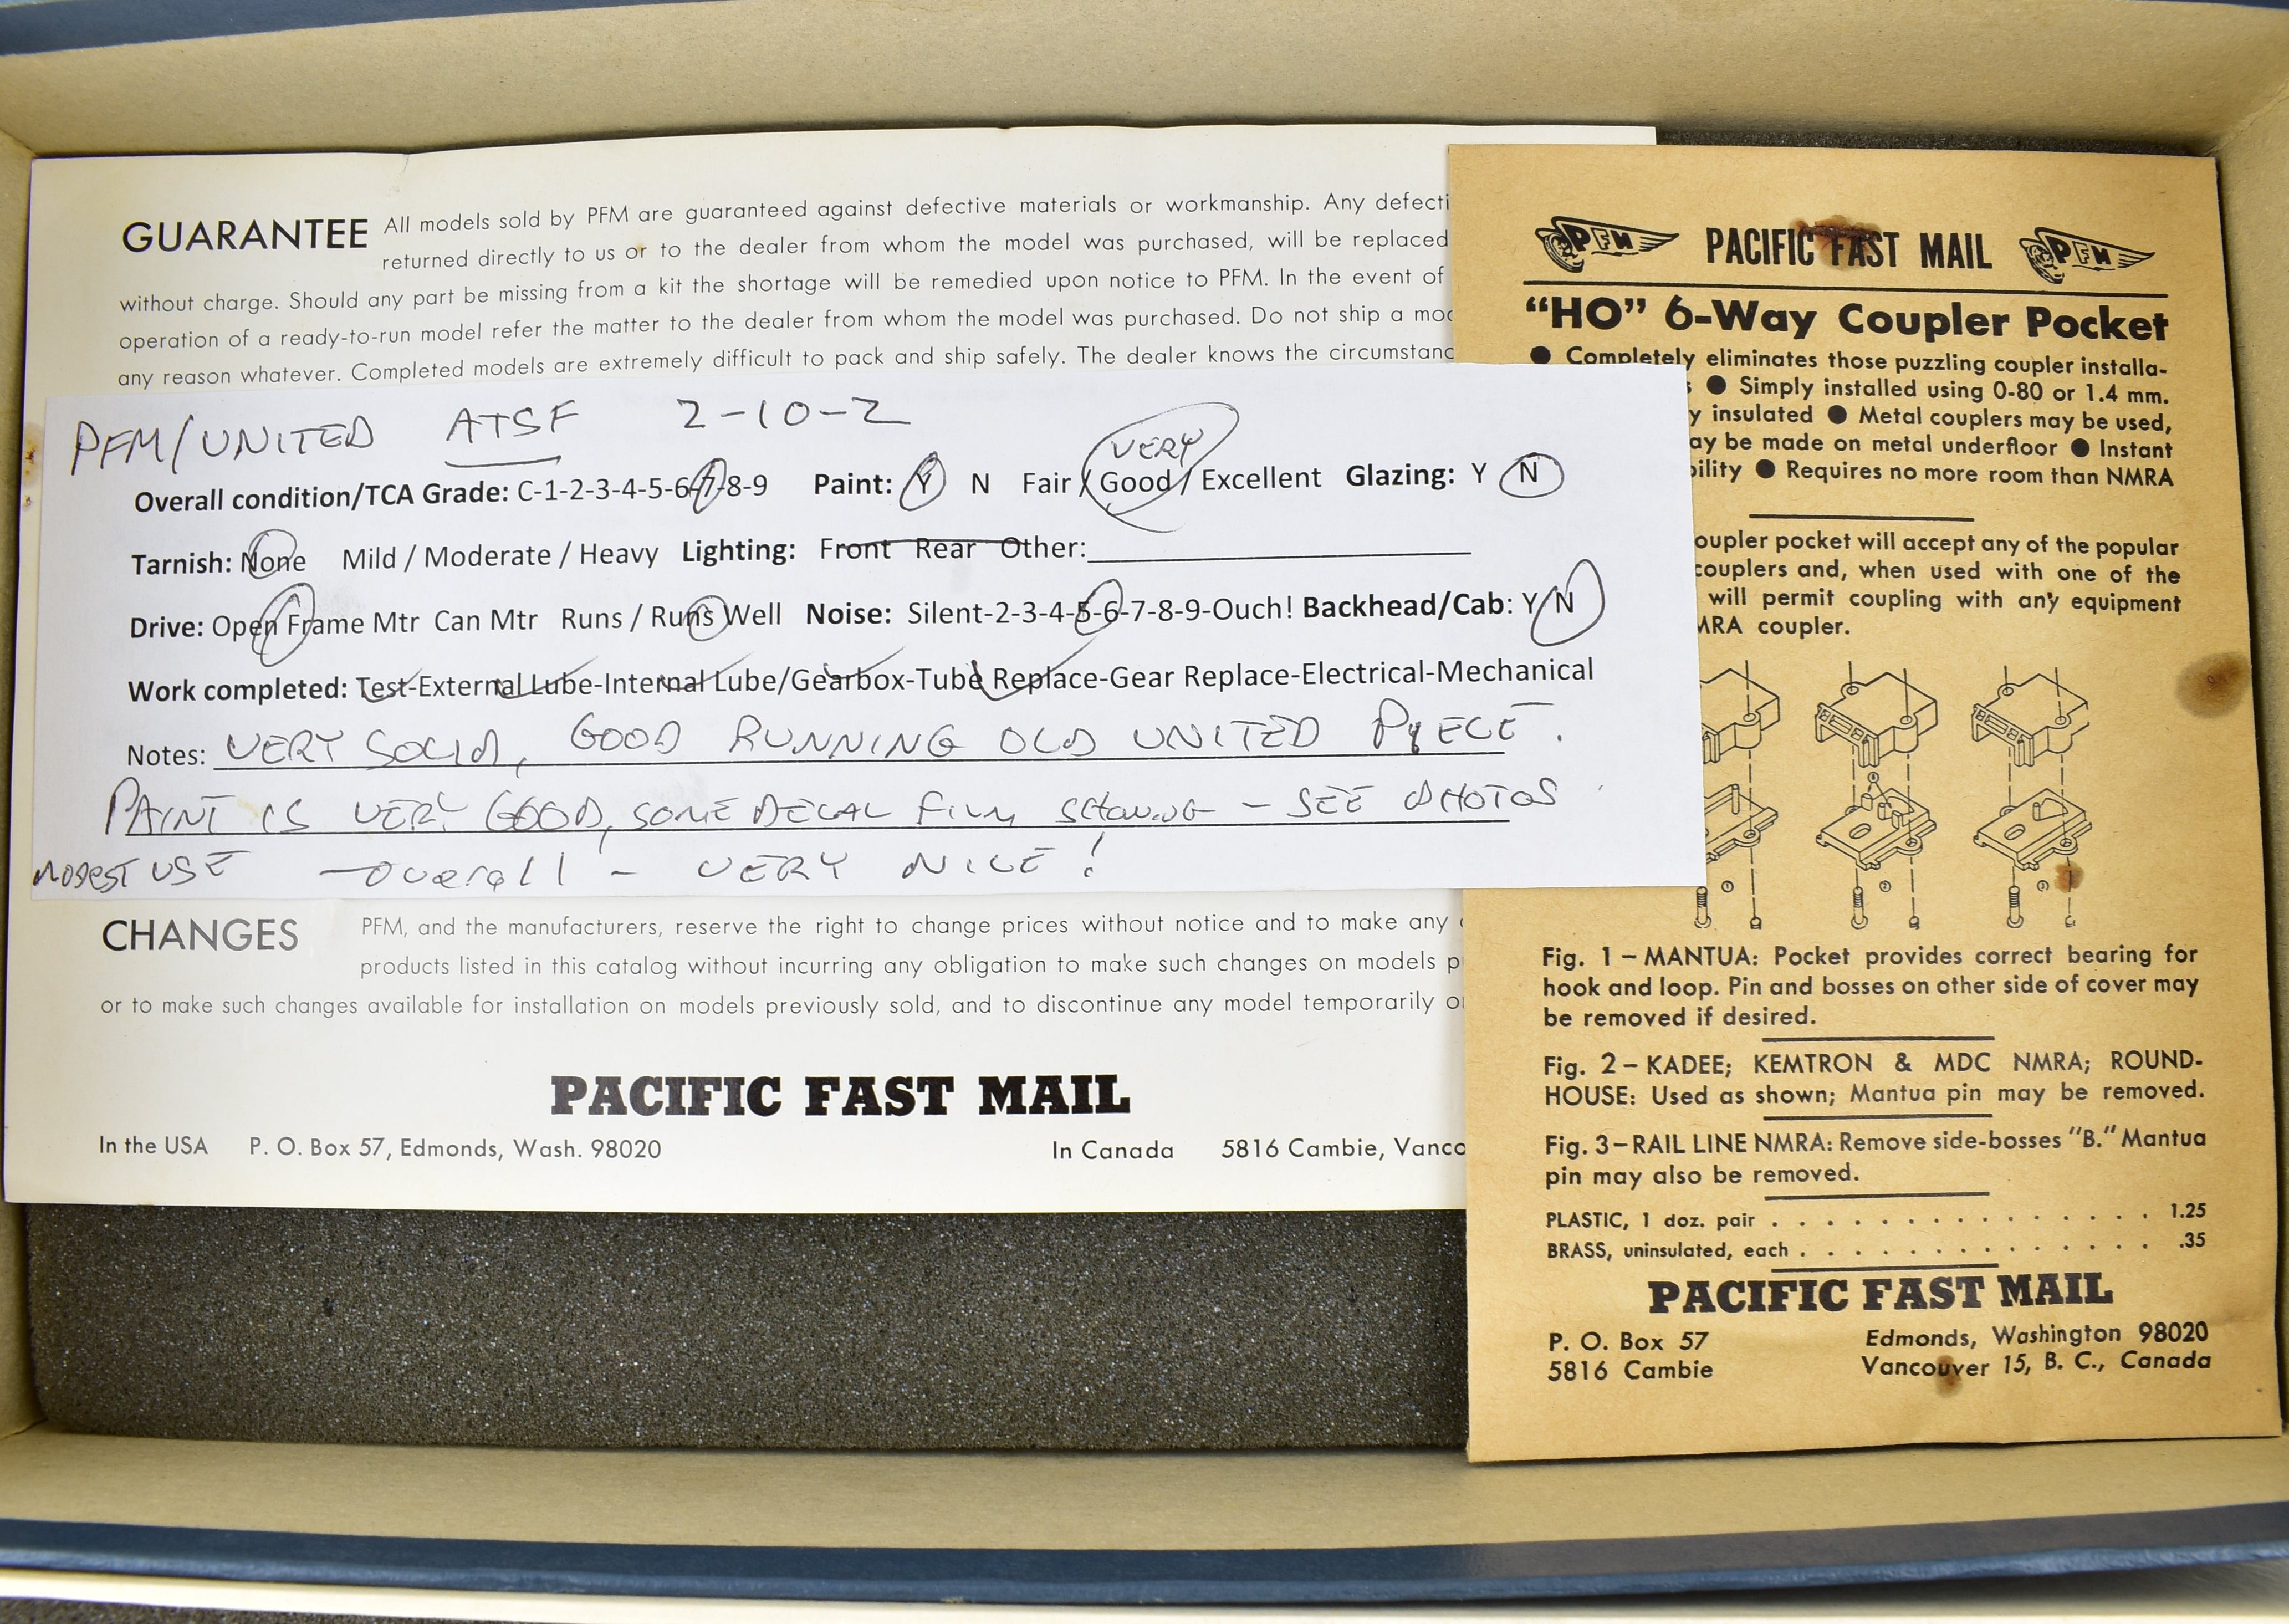 GUARANTEE All models sold by PFM are guaranteed against defective materials or workmanship. Any defecti
returned directly to us or to the dealer from whom the model was purchased, will be replaced
without charge. Should any part be missing from a kit the shortage will be remedied upon notice to PFM. In the event of
operation of a ready-to-run model refer the matter to the dealer from whom the model was purchased. Do not ship a mod
any reason whatever. Completed models are extremely difficult to pack and ship safely. The dealer knows the circumstanc
PFM/UNITED ATSF 2-10-2
VERY
Overall condition/TCA Grade: C-1-2-3-4-5-6-7-8-9 Paint: Y N Fair / Good / Excellent Glazing: Y N
Tarnish: None Mild / Moderate / Heavy Lighting: Front Rear Other:
Drive: Open Frame Mtr Can Mtr Runs / Runs Well Noise: Silent-2-3-4-5-6-7-8-9-Ouch! Backhead/Cab: Y/N
Work completed: Test-External Lube-Internal Lube/Gearbox-Tube Replace-Gear Replace-Electrical-Mechanical
Notes: VERY SOLID, GOOD RUNNING OLD UNITED PIECE.
PAINT IS VERY GOOD, SOME DECAL FILM SHOWING - SEE PHOTOS
MODEST USE - overall - VERY NICE!
CHANGES PFM, and the manufacturers, reserve the right to change prices without notice and to make any
products listed in this catalog without incurring any obligation to make such changes on models p
or to make such changes available for installation on models previously sold, and to discontinue any model temporarily o
PACIFIC FAST MAIL
In the USA P. O. Box 57, Edmonds, Wash. 98020 In Canada 5816 Cambie, Vanco
PFM PACIFIC FAST MAIL PFM
"HO" 6-Way Coupler Pocket
● Completely eliminates those puzzling coupler installa-
● Simply installed using 0-80 or 1.4 mm.
y insulated ● Metal couplers may be used,
ay be made on metal underfloor ● Instant
bility ● Requires no more room than NMRA
oupler pocket will accept any of the popular
couplers and, when used with one of the
will permit coupling with any equipment
MRA coupler.
① ② ③
Fig. 1 – MANTUA: Pocket provides correct bearing for
hook and loop. Pin and bosses on other side of cover may
be removed if desired.
Fig. 2 – KADEE; KEMTRON & MDC NMRA; ROUND-
HOUSE: Used as shown; Mantua pin may be removed.
Fig. 3 – RAIL LINE NMRA: Remove side-bosses "B." Mantua
pin may also be removed.
PLASTIC, 1 doz. pair . . . . . . . . . . . . . . . 1.25
BRASS, uninsulated, each . . . . . . . . . . . . . . .35
PACIFIC FAST MAIL
P. O. Box 57 Edmonds, Washington 98020
5816 Cambie Vancouver 15, B. C., Canada